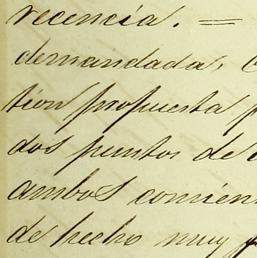 recencia. =
demandada,
tion propuesta
dos puntos de
ambos
de hecho muy